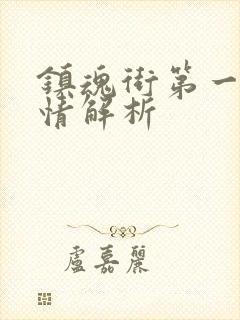 鎮魂街第一
情解析
盧嘉麗